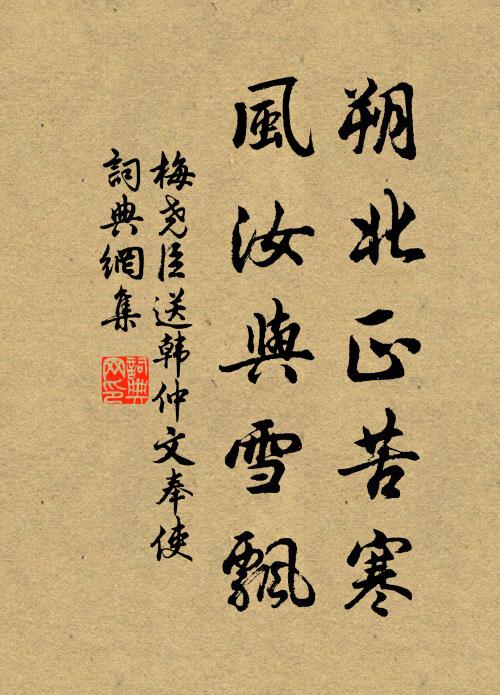 朔北正苦寒
風汝與雪飄
梅尧臣送韩仲文奉使
詞典網集
詞典網印